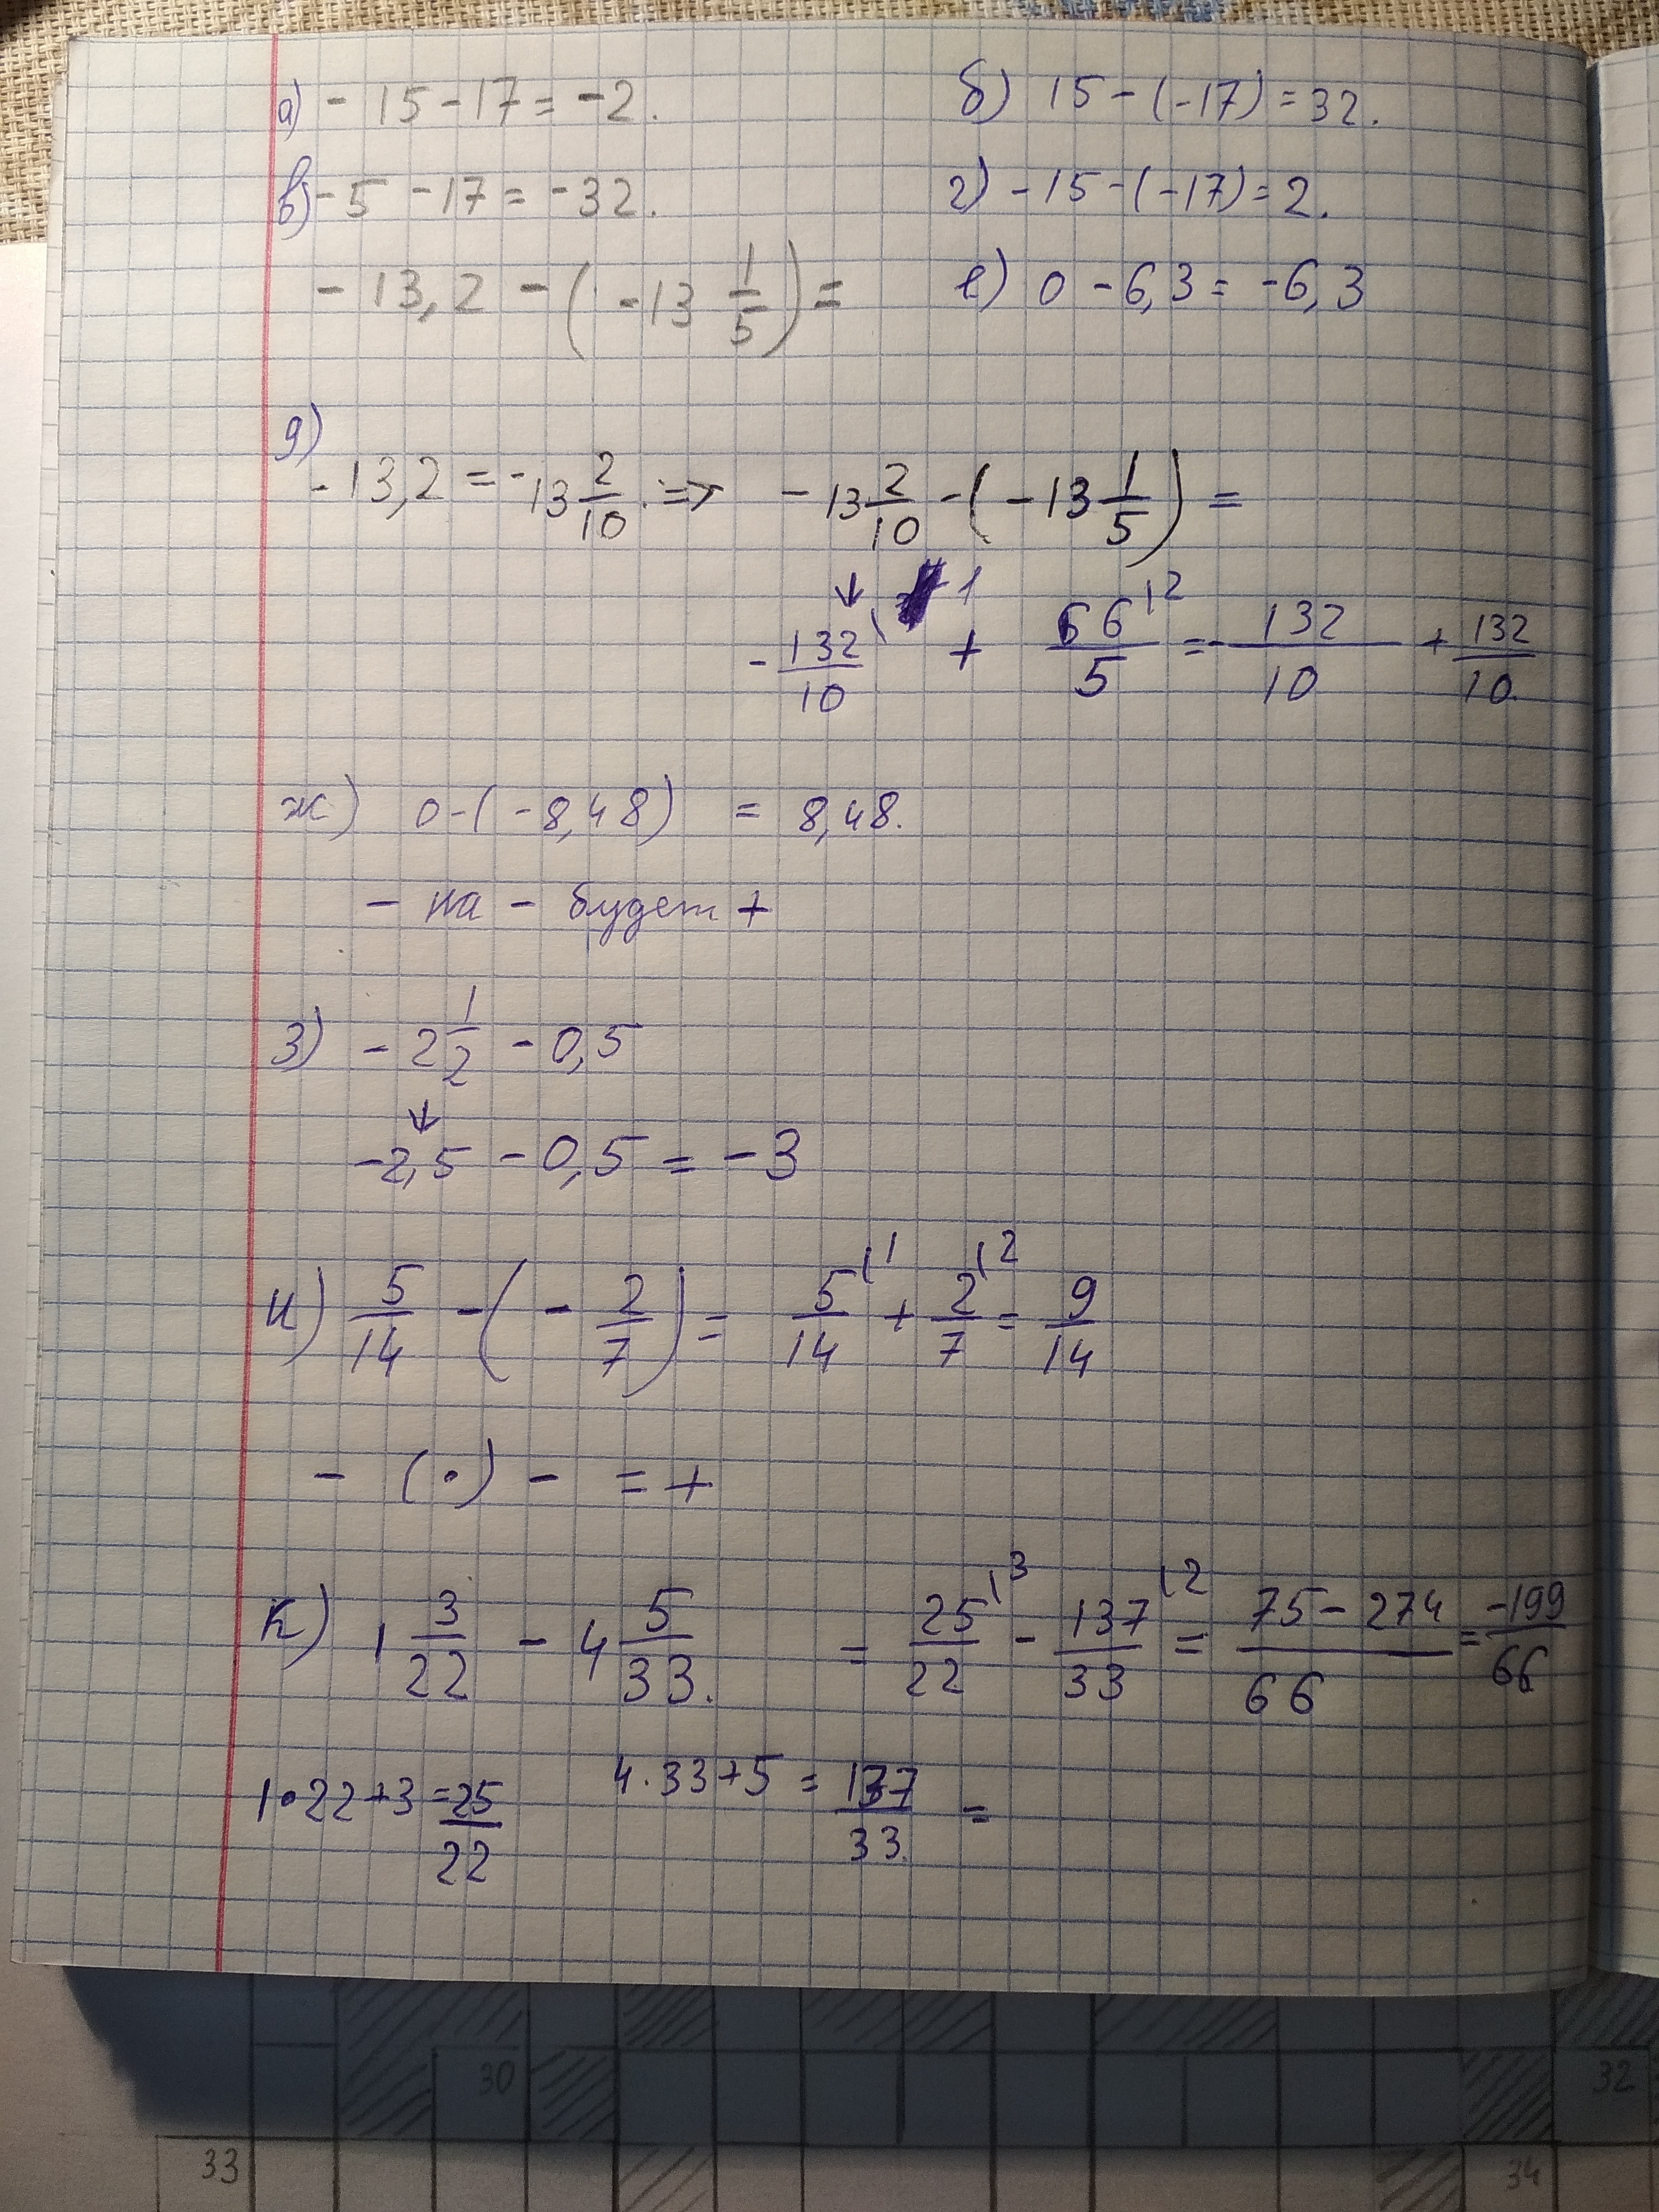 а) - 15 - 17 = -2. б) 15 - (-17) = 32.
в) - 5 - 17 = -32. г) - 15 - (-17) = 2.
- 13,2 - (-13 1/5) = е) 0 - 6,3 = -6,3
д)
- 13,2 = -13 2/10. => - 13 2/10 - (-13 1/5) =
↓
- 132/10 \1 + 66/5 \2 = - 132/10 + 132/10.
ж) 0 - (-8,48) = 8,48.
- на - будет +
з) - 2 1/2 - 0,5
↓
-2,5 - 0,5 = -3
и) 5/14 - (- 2/7) = 5/14 \1 + 2/7 \2 = 9/14
- (•) - = +
к) 1 3/22 - 4 5/33. = 25/22 \3 - 137/33 \2 = 75 - 274/66 = -199/66
1•22+3 = 25/22 4.33+5 = 137/33. =
30 32
33 34